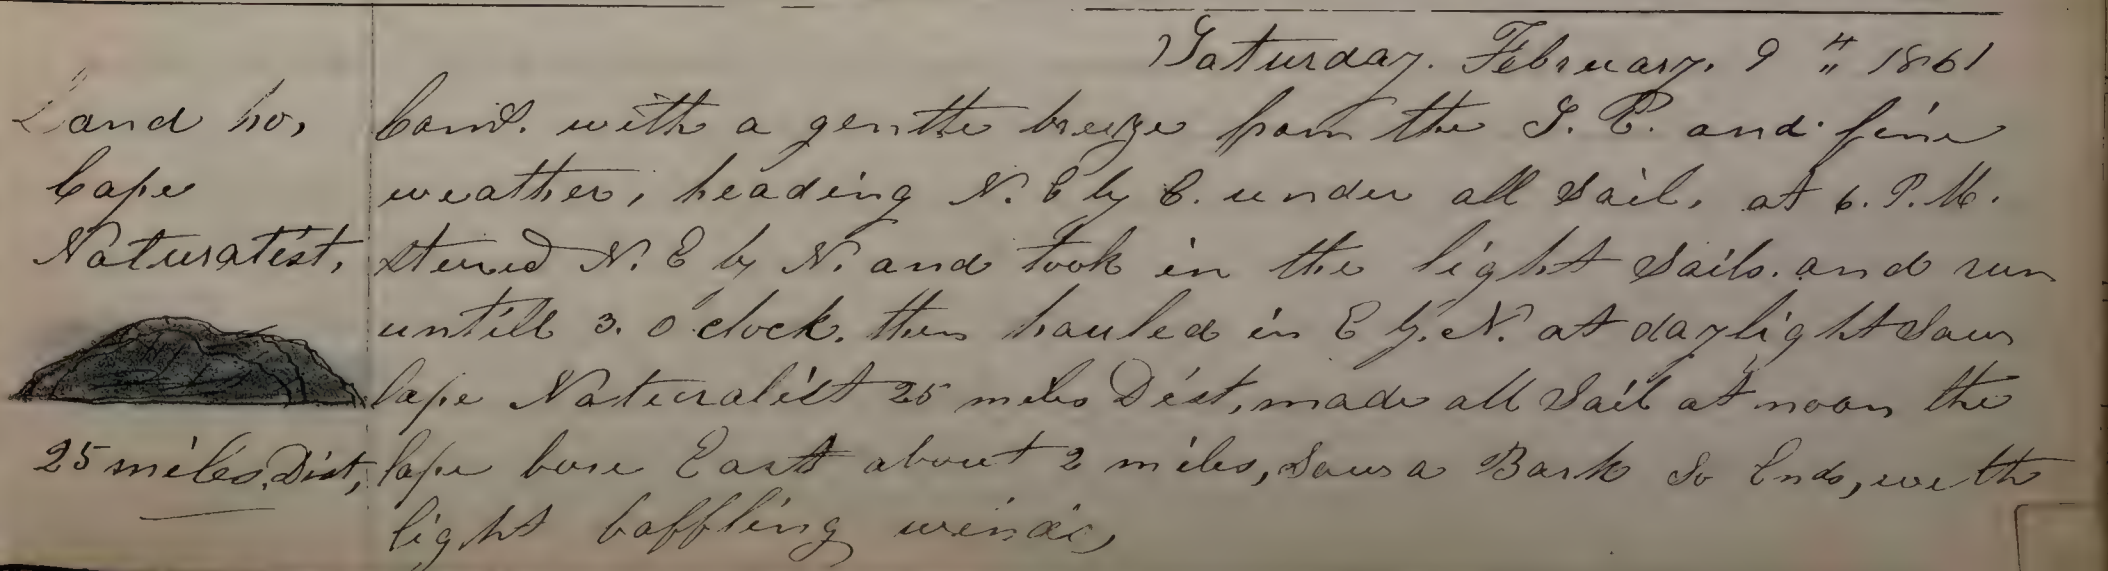 Saturday. February. 9 " 1861
Land ho,
Cape
Naturalist,
25 miles. Dist,
Comd. with a gentle breeze from the S. E. and fine
weather, heading N. E by E. under all sail, at 6. P. M.
stered N. E by N. and took in the light sails. and run
untill 3. O clock. then hauled in E by. N. at daylight saw
Cape Naturalist 25 miles Dist, made all sail at noon the
Cape bore East about 2 miles, saw a Bark So Ends, with
light baffling winds,